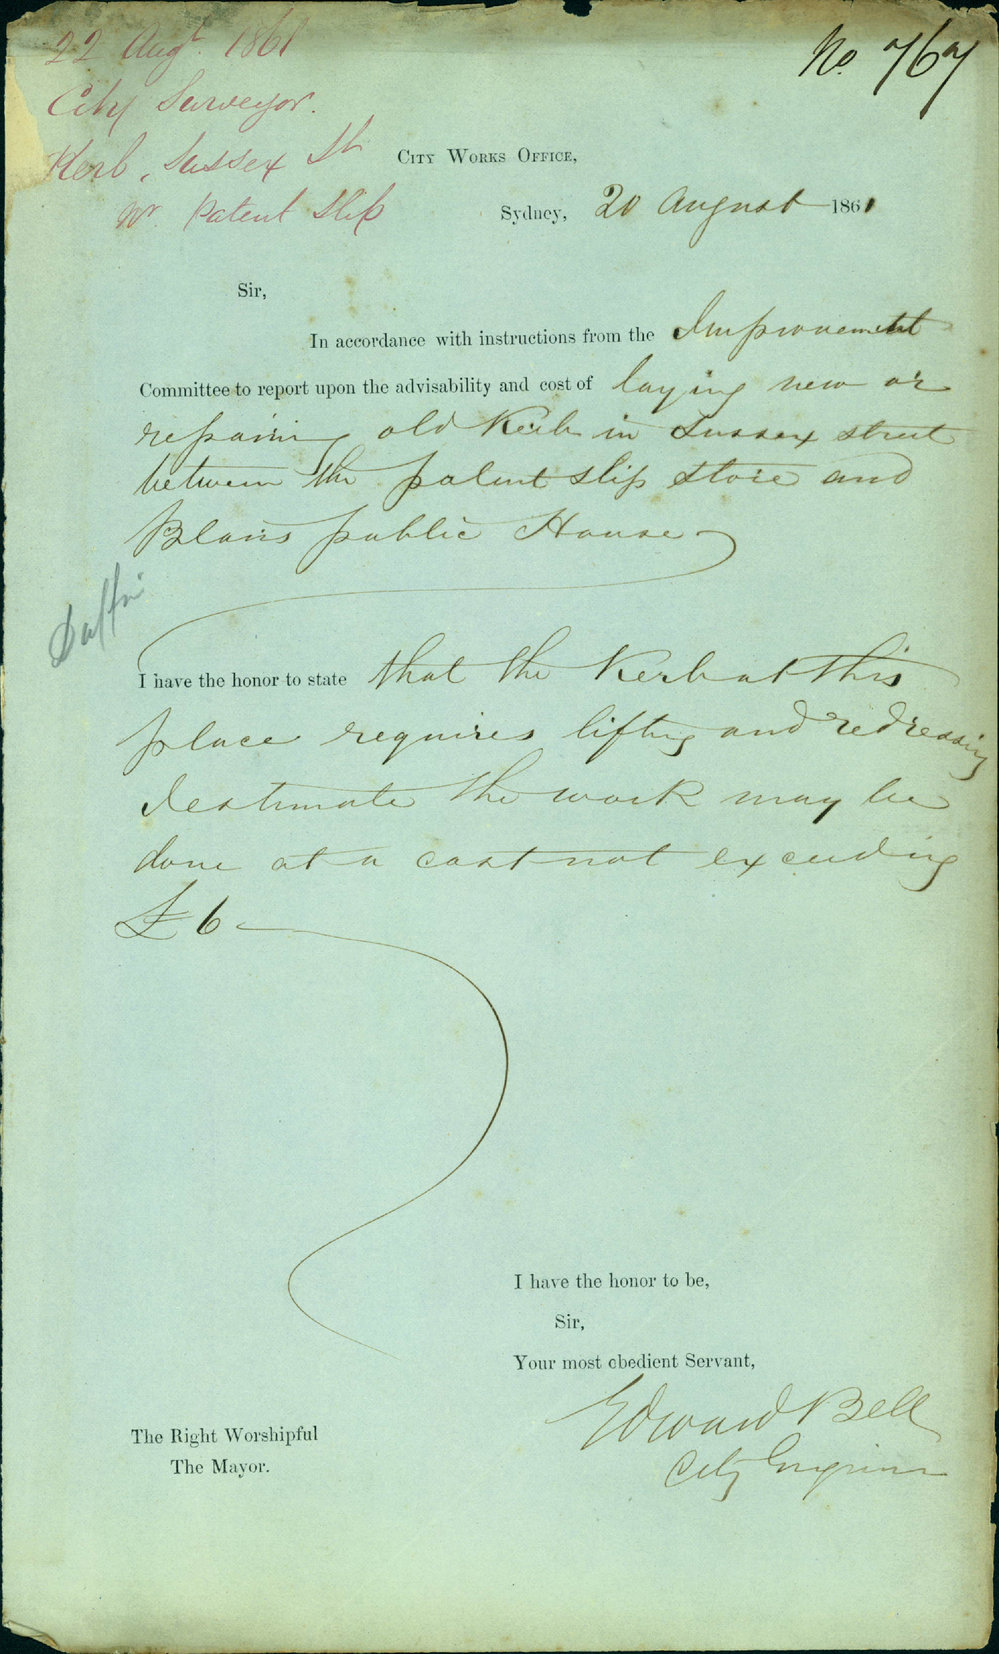 22 Augt. 1861
City Surveyor.
Kerb, Sussex St
Nr Patent Slip
No. 767
City Works Office,
Sydney, 20 August 1861
Sir,
In accordance with instructions from the Improvement
Committee to report upon the advisability and cost of laying new or
repairing old Kerb in Sussex street
between the patent slip store and
Blairs public House
I have the honor to state that the Kerb at this
place requires lifting and redressing
I estimate the work may be
done at a cost not exceeding
£6
I have the honor to be,
Sir,
Your most obedient Servant,
Edward Bell
City Engineer
The Right Worshipful
The Mayor.